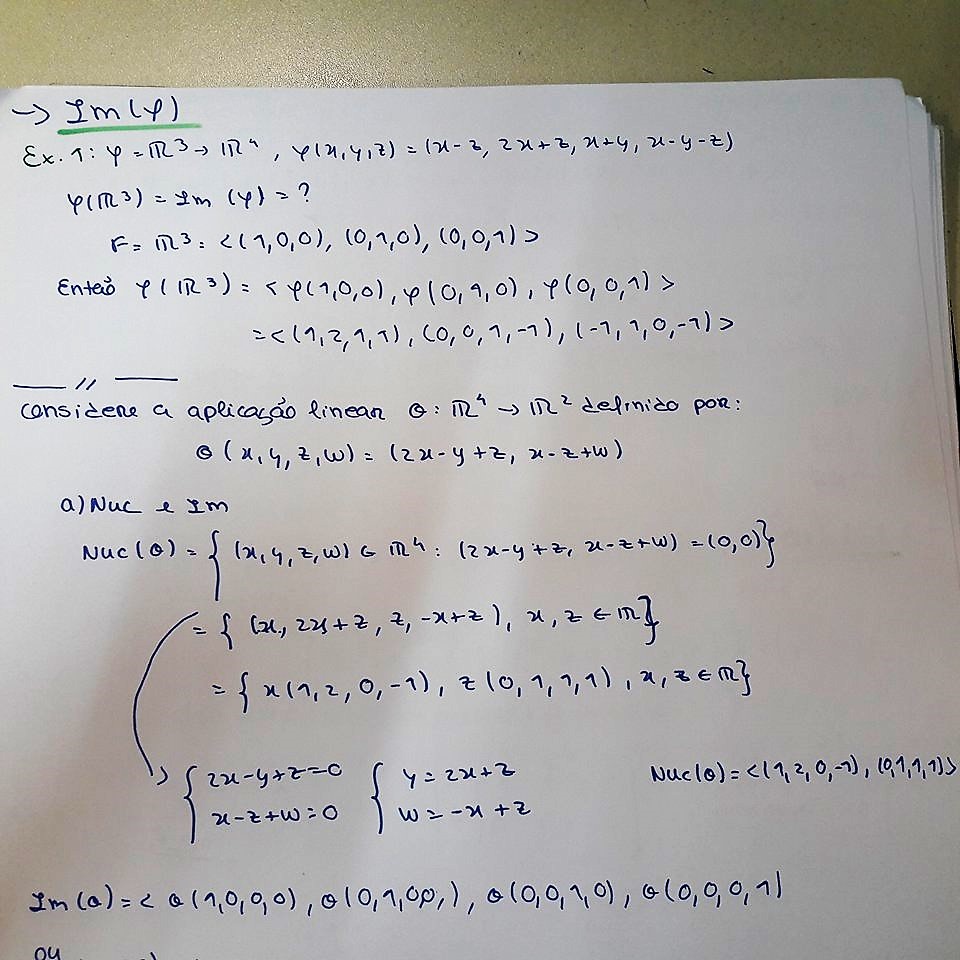 → Im(φ)
Ex. 1: φ = ℝ³ → ℝ⁴, φ(x,y,z) = (x-z, 2x+z, x+y, x-y-z)
φ(ℝ³) = Im (φ) = ?
F = ℝ³ = <(1,0,0), (0,1,0), (0,0,1)>
Então φ(ℝ³) = <φ(1,0,0), φ(0,1,0), φ(0,0,1)>
= <(1,2,1,1), (0,0,1,-1), (-1,1,0,-1)>
— // —
Considere a aplicação linear θ: ℝ⁴ → ℝ² definido por:
θ(x,y,z,w) = (2x-y+z, x-z+w)
a) Nuc e Im
Nuc(θ) = {(x,y,z,w) ∈ ℝ⁴: (2x-y+z, x-z+w) = (0,0)}
= {(x, 2x+z, z, -x+z), x, z ∈ ℝ}
= {x(1,2,0,-1), z(0,1,1,1), x,z ∈ ℝ}
{2x-y+z=0 {y=2x+z Nuc(θ) = <(1,2,0,-1), (0,1,1,1)>
x-z+w=0 w=-x+z
Im(θ) = <θ(1,0,0,0), θ(0,1,0,0,), θ(0,0,1,0), θ(0,0,0,1)
ou